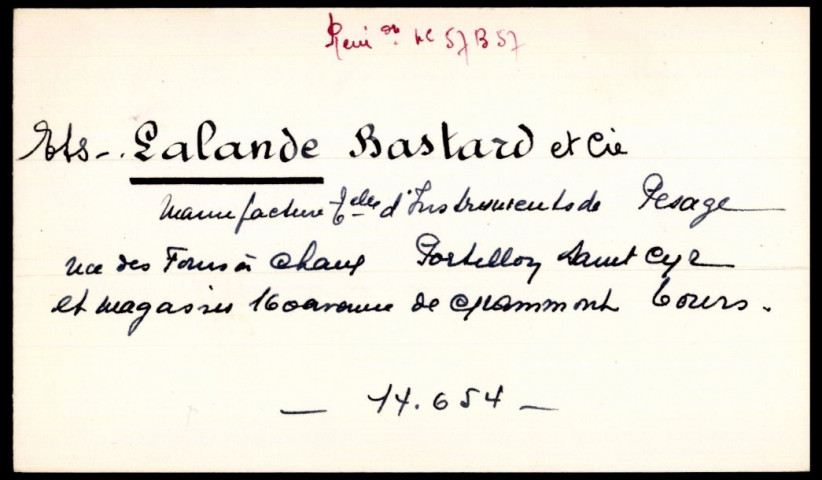 57 B 57
Ets - Lalande Bastard et Cie
Manufacture d'Instruments de Pesage
rue des Fours à Chaux Portillon Saint Cyr
et magasins 160 avenue de Grammont Tours.
— 14.654 —